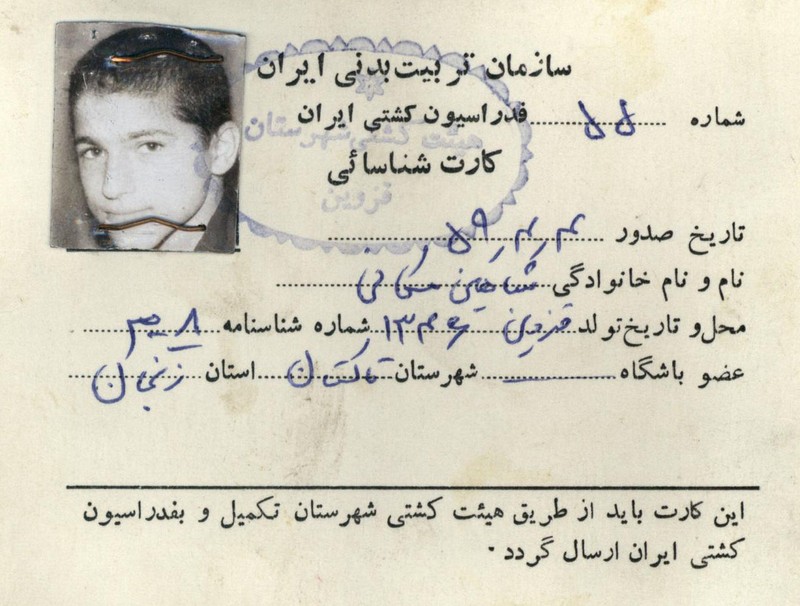 سازمان تربیت‌بدنی ایران
شماره ۵۵ فدراسیون کشتی ایران
کارت شناسائی
هیئت کشتی شهرستان
قزوین
تاریخ صدور ۵۹٫۴٫۴
نام و نام خانوادگی شاهین
محل و تاریخ تولد قزوین ۱۳۴۶ شماره شناسنامه
عضو باشگاه شهرستان تاکستان استان زنجان
این کارت باید از طریق هیئت کشتی شهرستان تکمیل و بفدراسیون
کشتی ایران ارسال گردد ۰